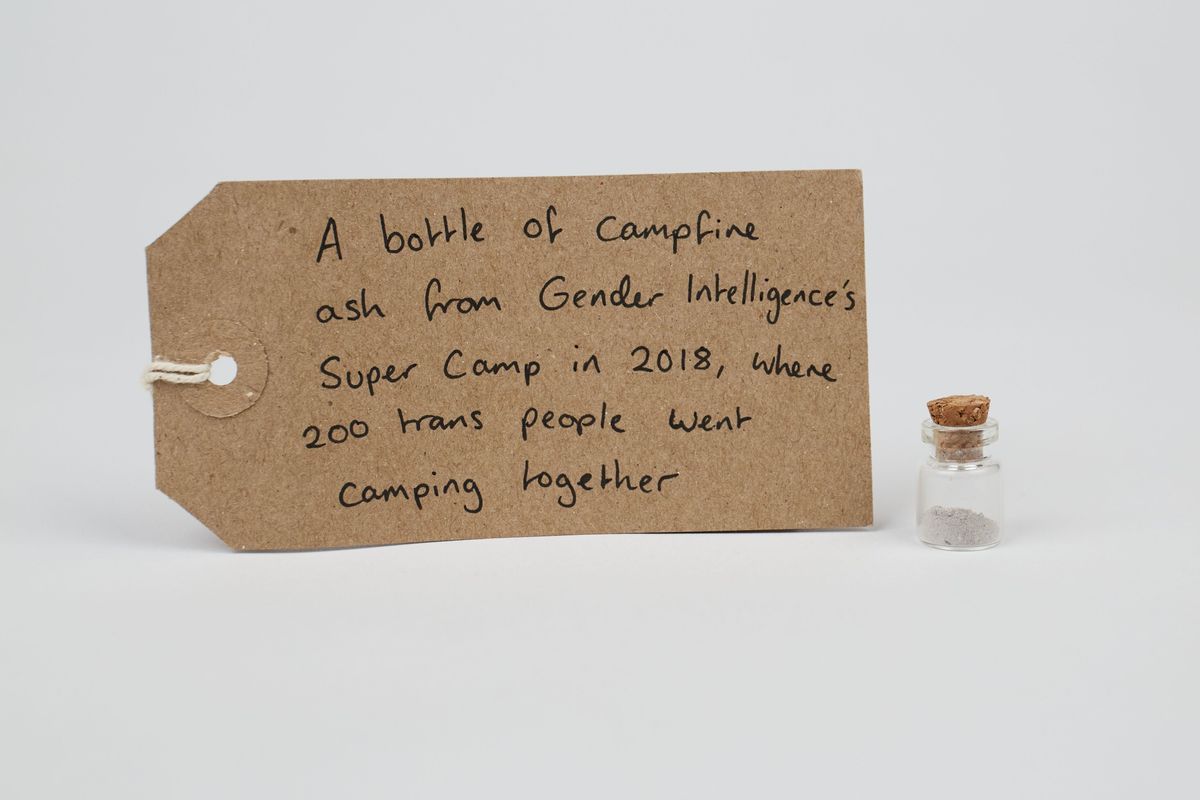 A bottle of campfire
ash from Gender Intelligence's
Super Camp in 2018, where
200 trans people went
camping together